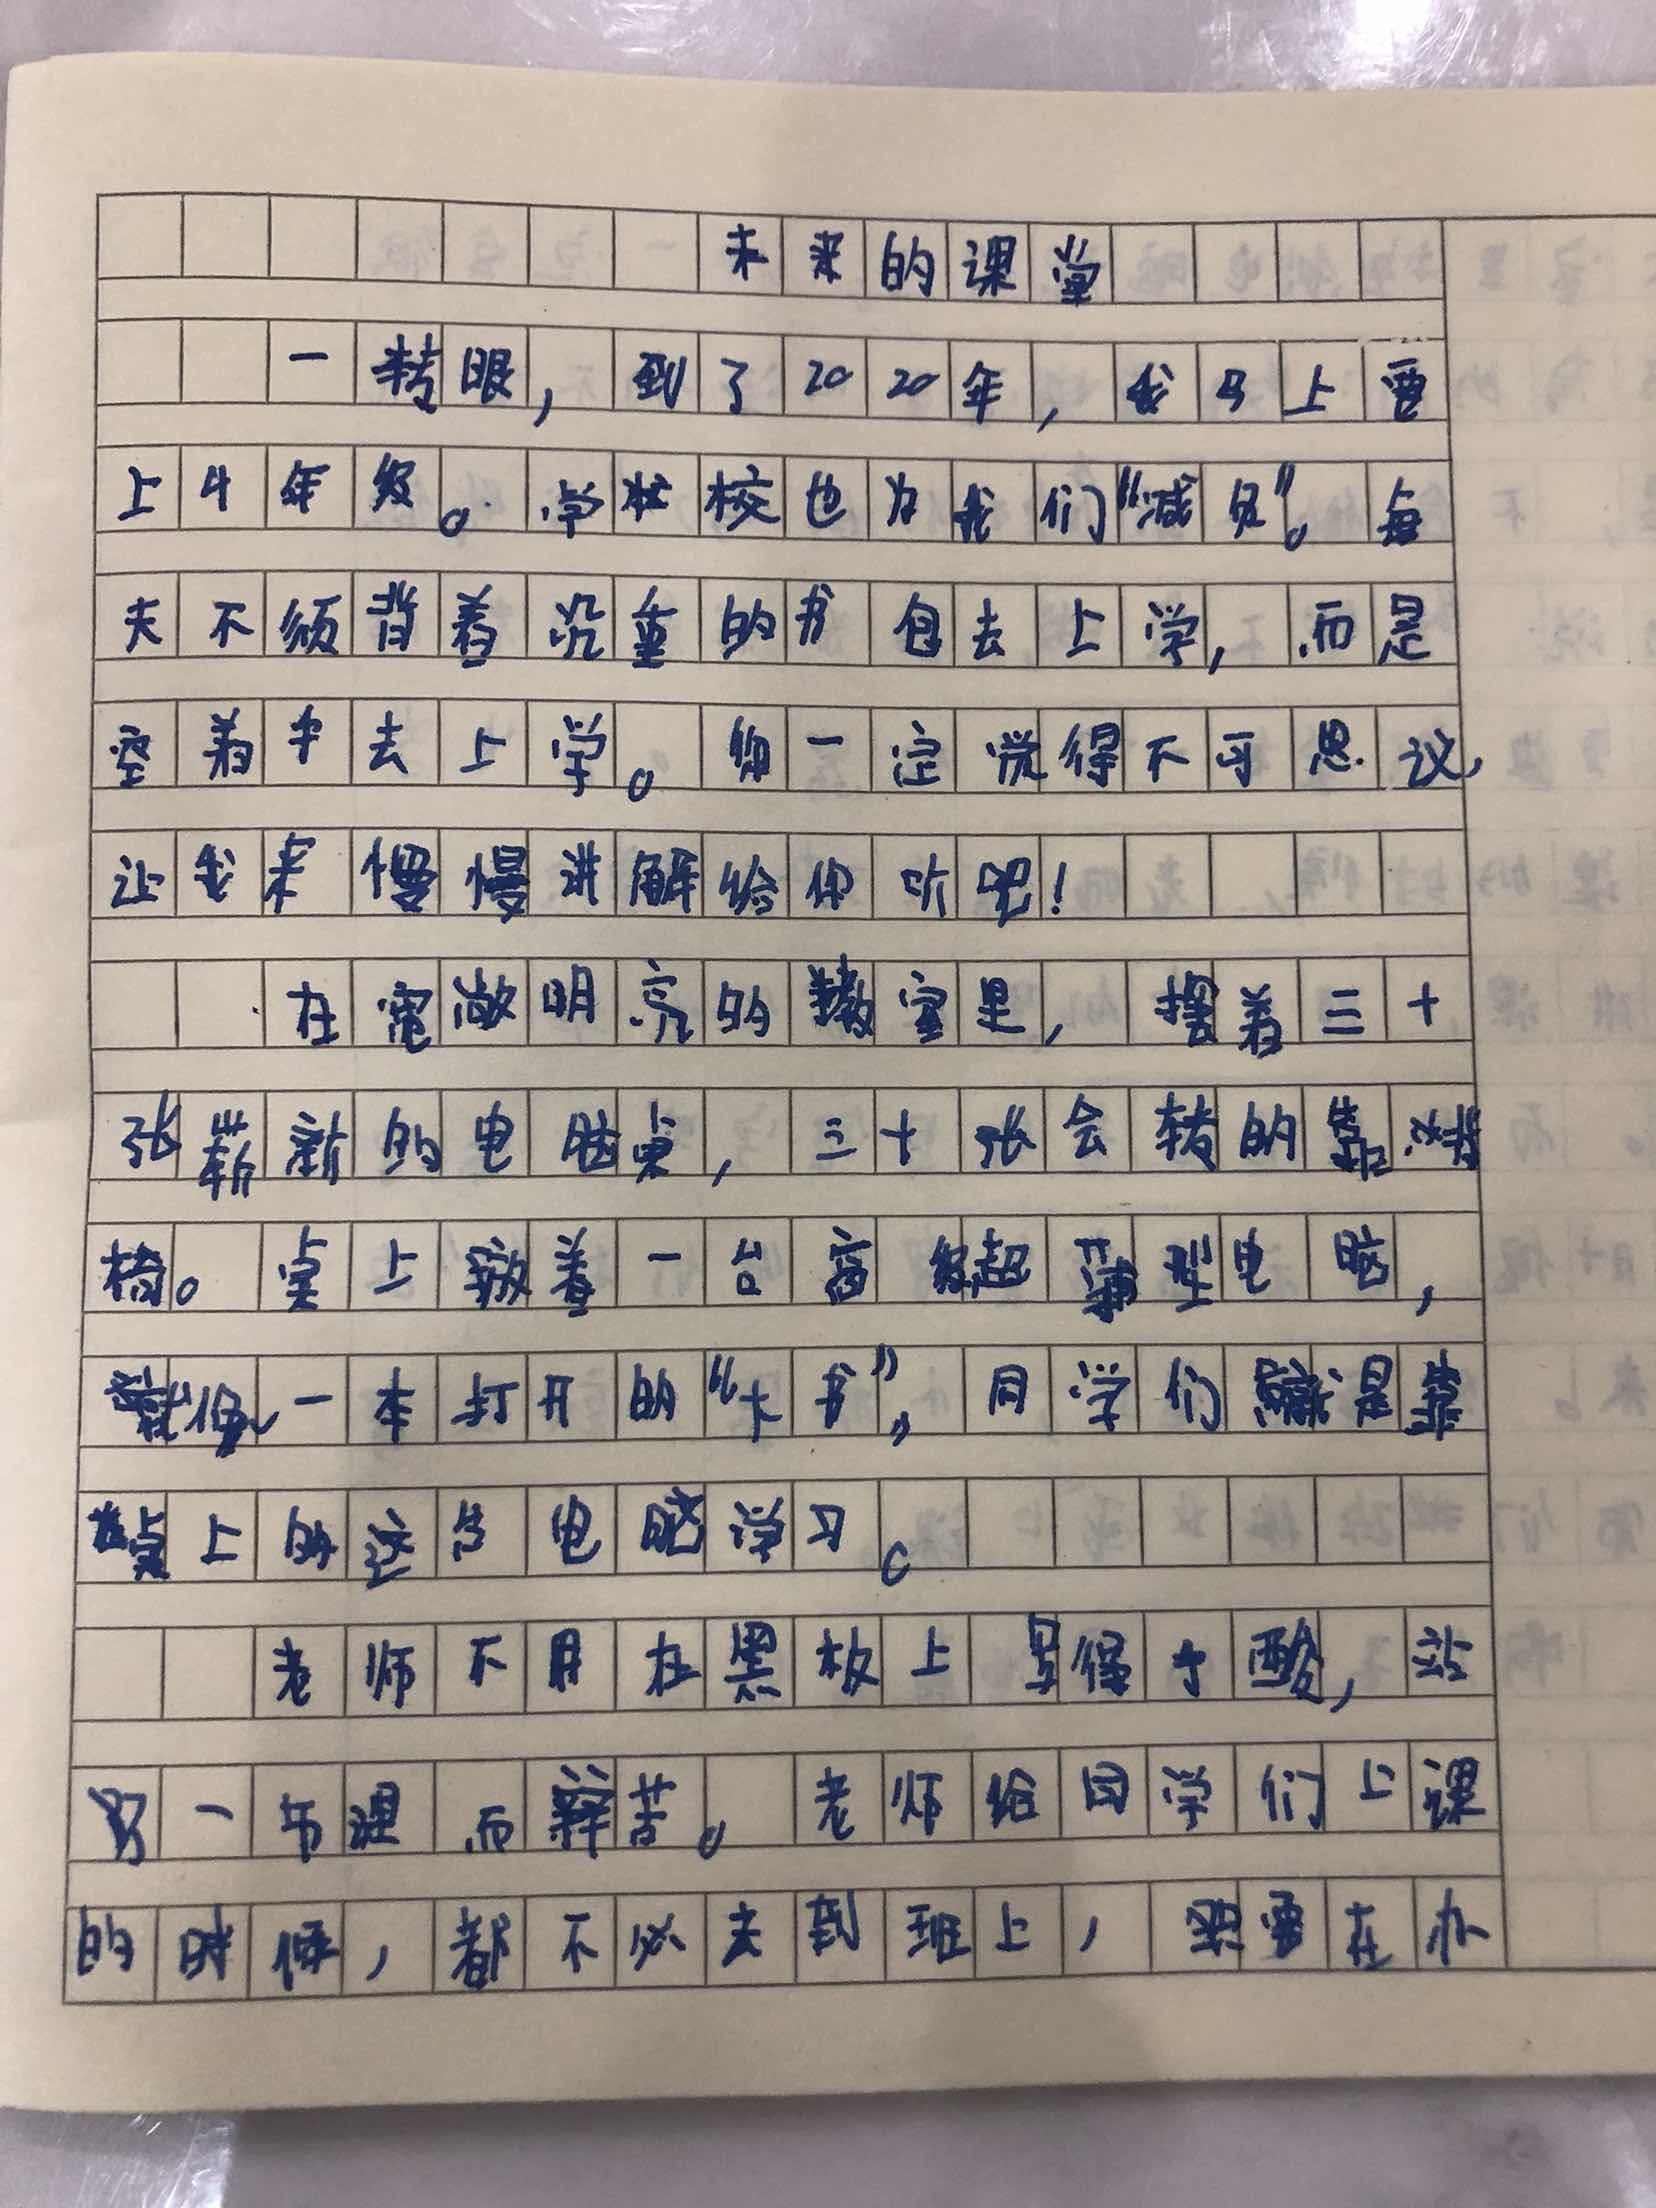 未来的课堂
一转眼，到了2020年，我马上要
上4年级。学校也为我们“减负”。每
天不须背着沉重的书包去上学，而是
空着手去上学。你一定觉得不可思议，
让我来慢慢讲解给你听吧！
在宽敞明亮的教室里，摆着三十
张崭新的电脑桌，三十张会转的靠背
椅。桌上放着一台高级超薄型电脑，
就像一本打开的“大书”，同学们就是靠
桌上的这台电脑学习。
老师不用在黑板上写得手酸，站
了一节课而辛苦。老师给同学们上课
的时候，都不必去到班上，只要在办